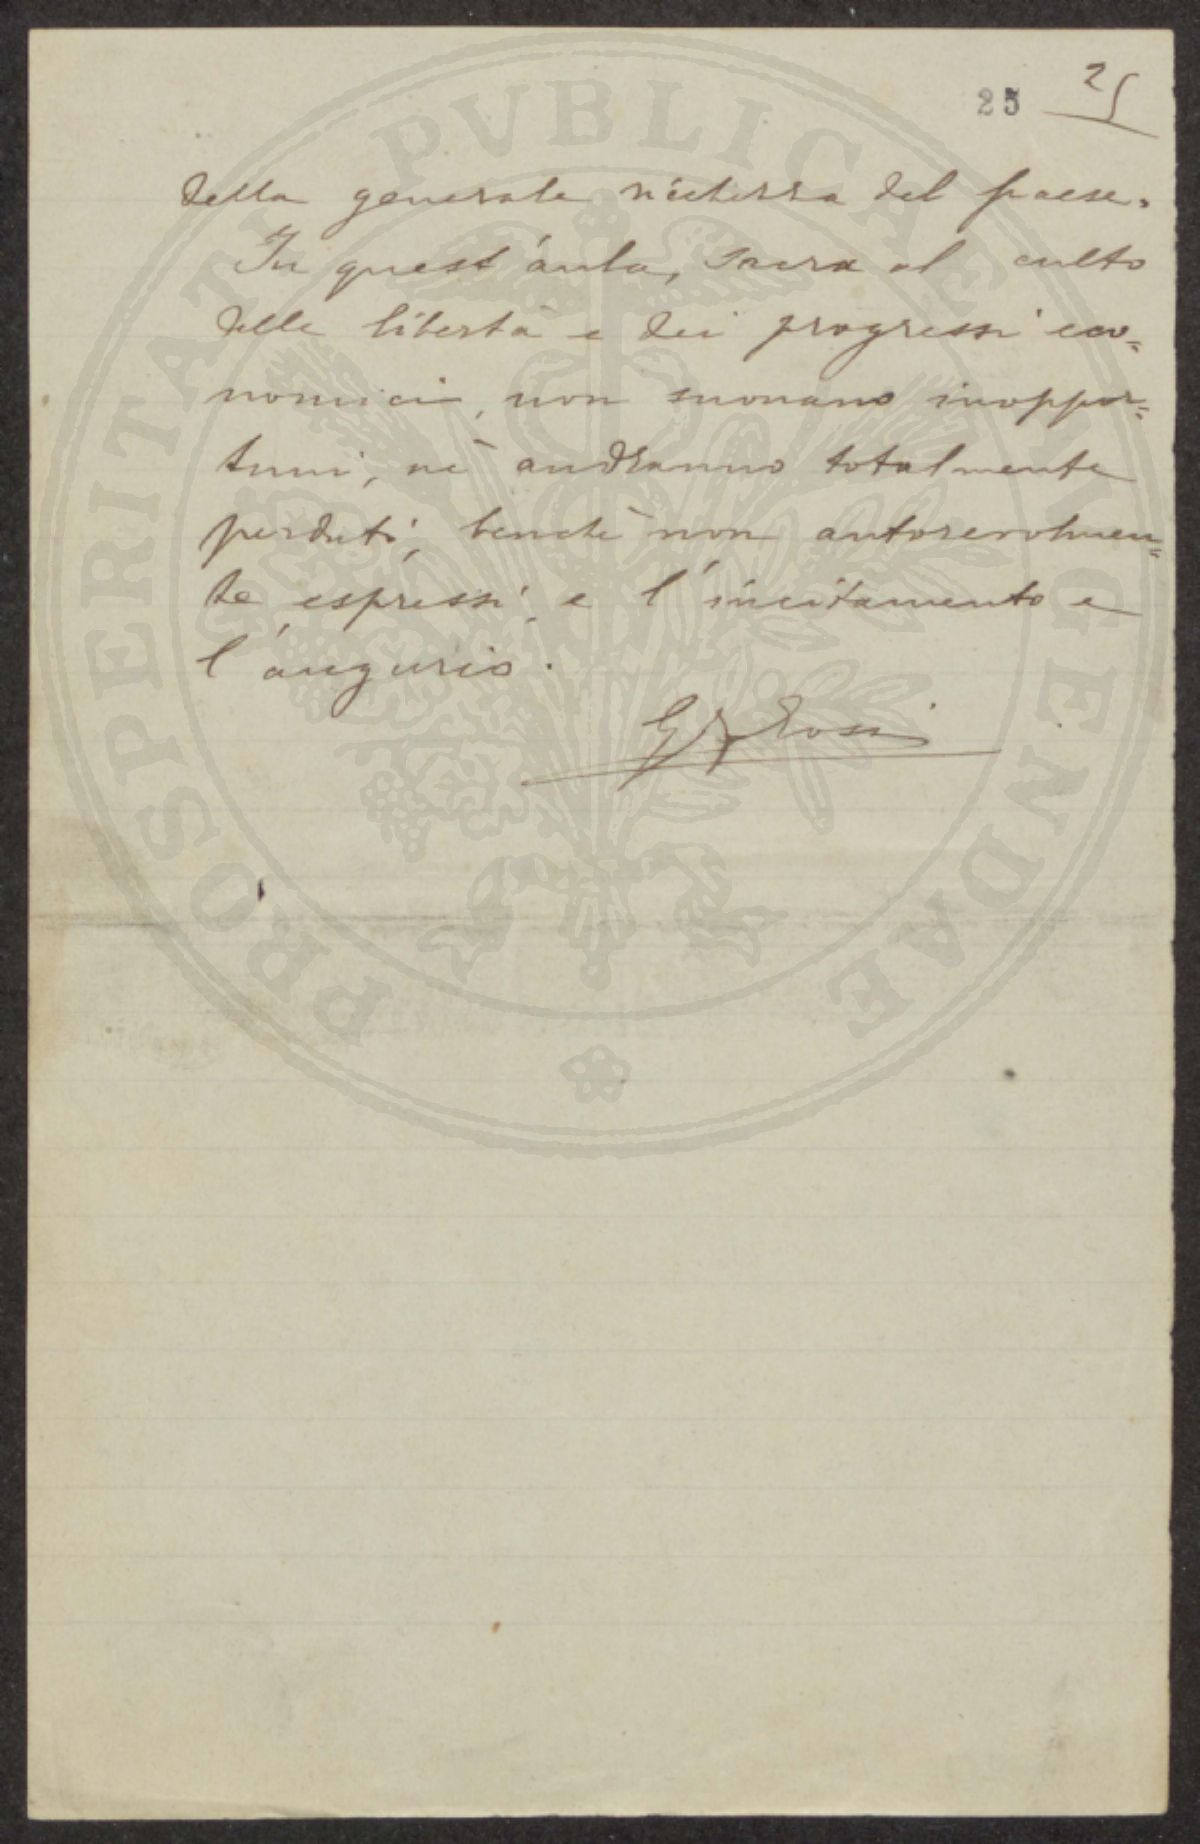 25 25
della generale ricchezza del paese.
In quest'aula, sacra al culto
delle libertà e dei progressi eco=
nomici, non suonano inoppor=
tuni, nè andranno totalmente
perduti, benchè non autorevolmen=
te espressi, e l'incitamento e
l'augurio.
G Rossi
PROSPERITATI PVBLICAE AVGENDAE